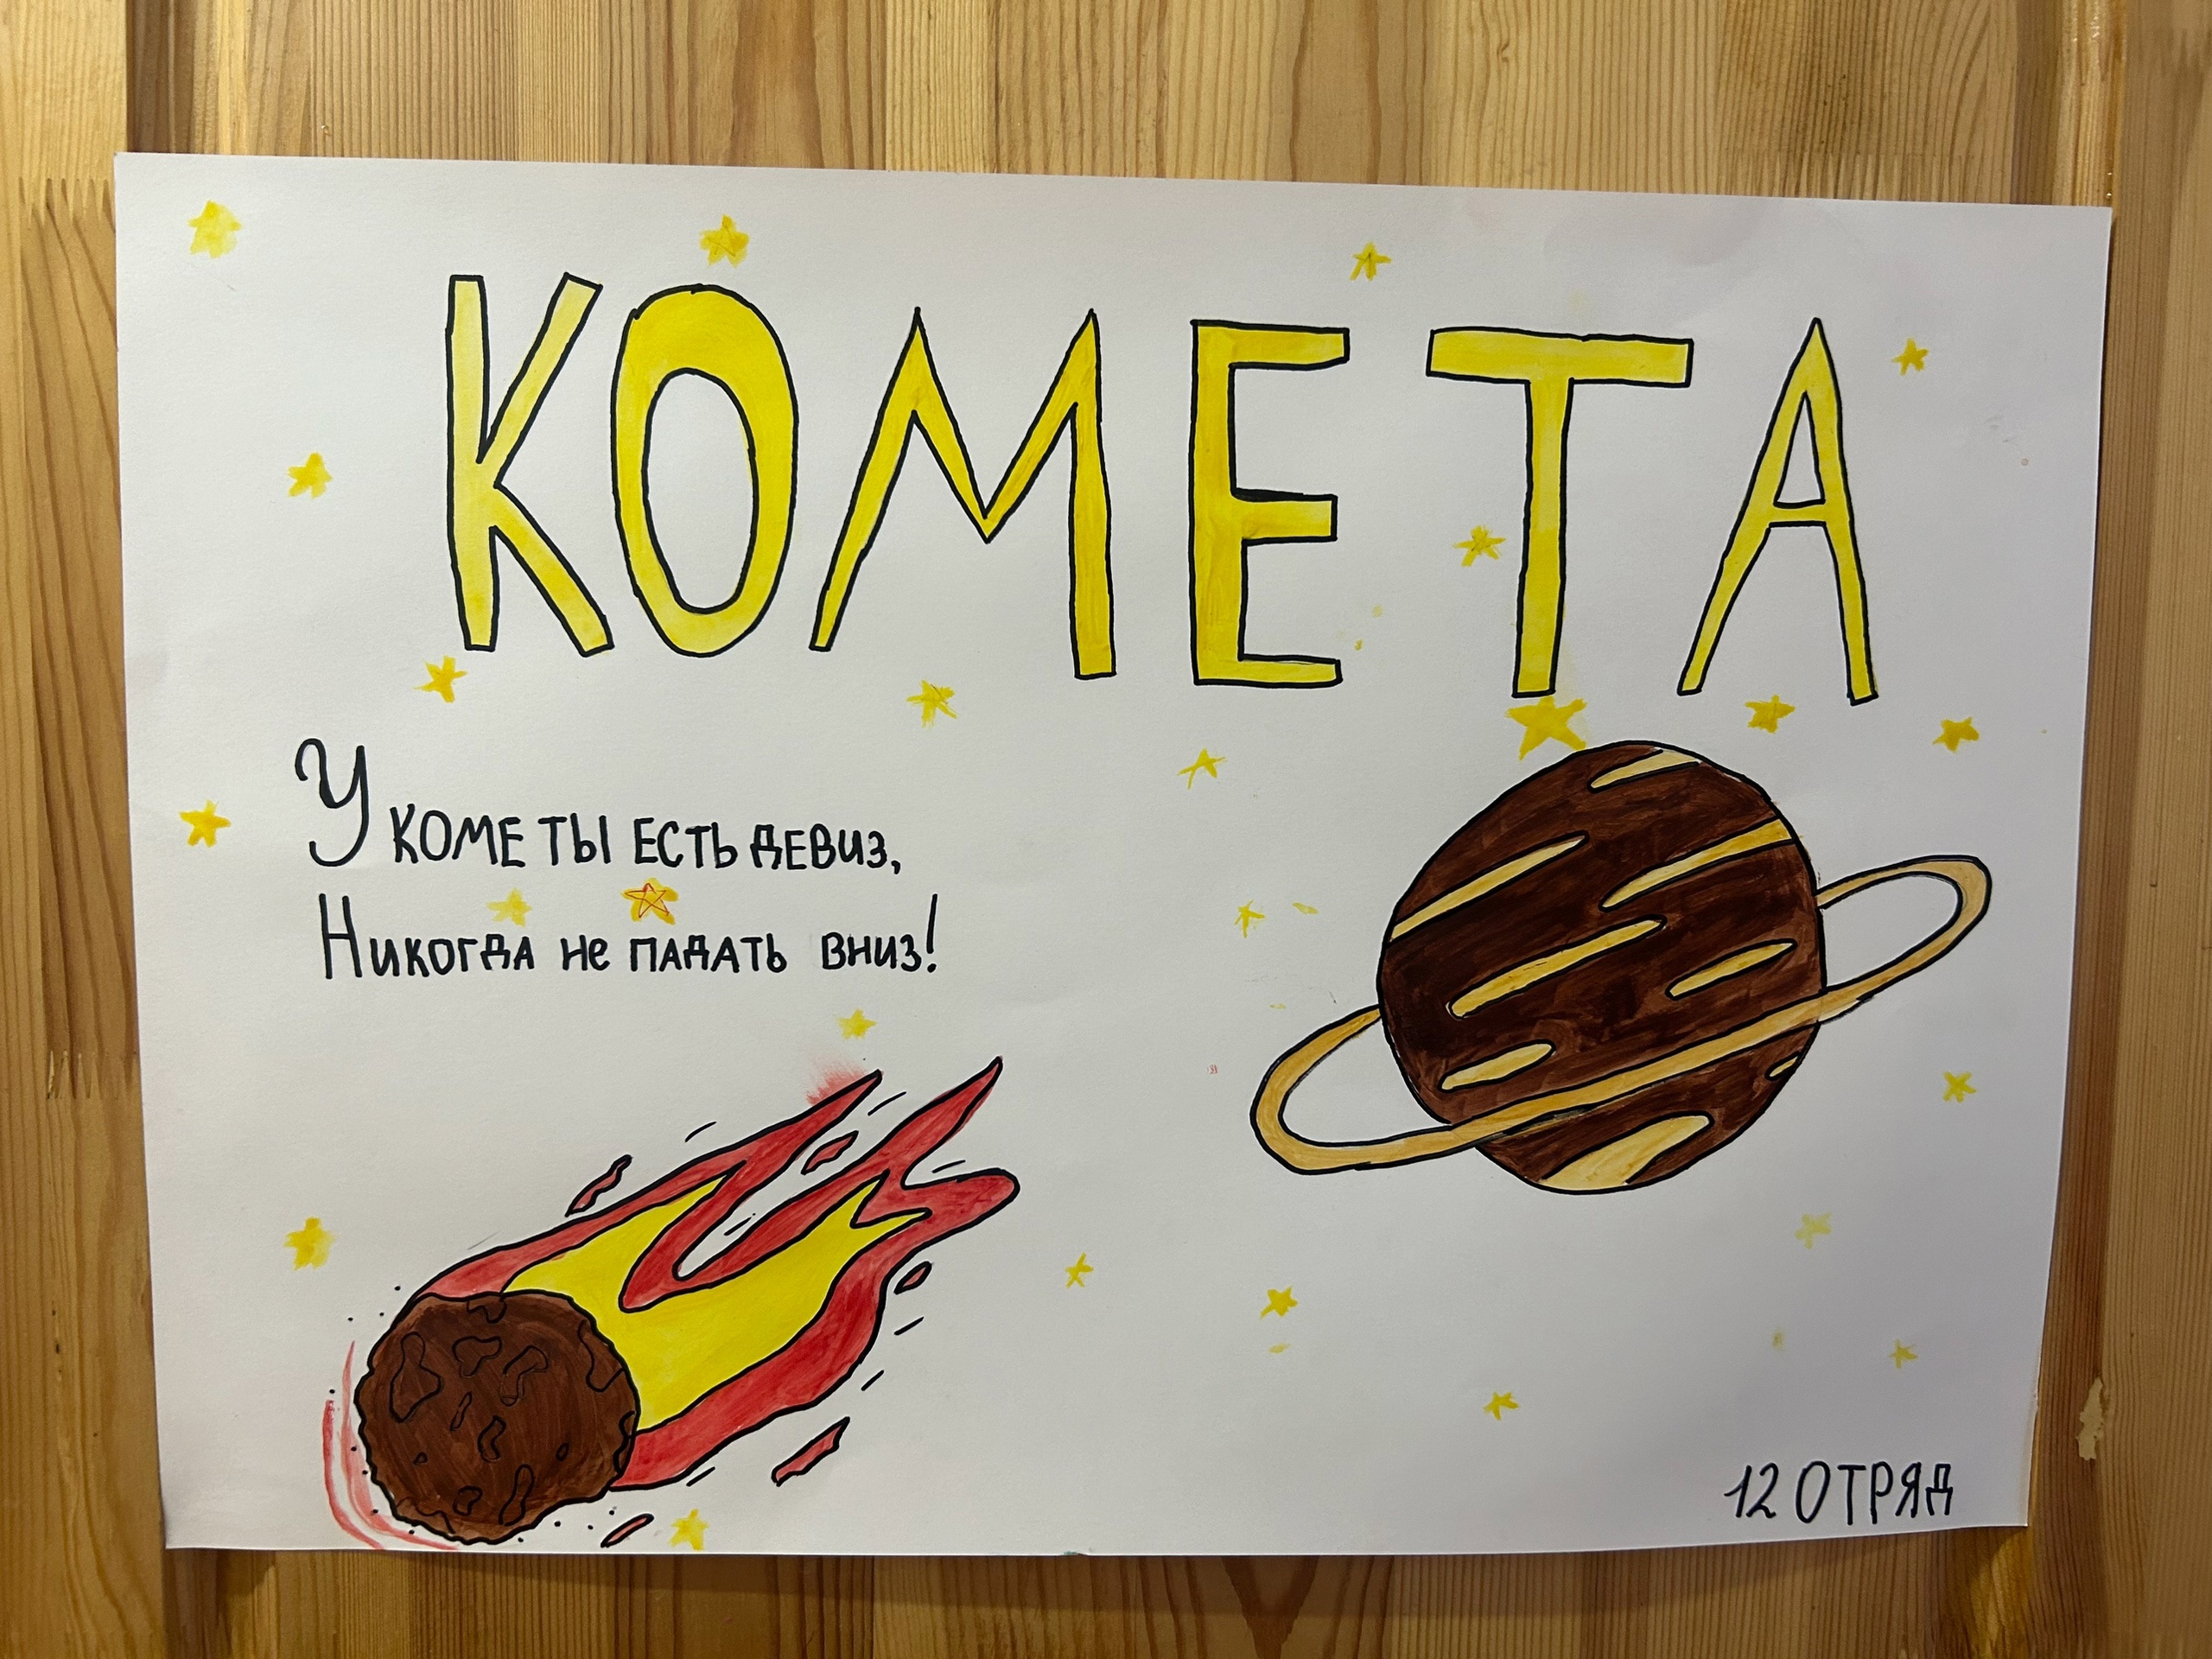 КОМЕТА
У КОМЕТЫ ЕСТЬ ДЕВИЗ,
НИКОГДА НЕ ПАДАТЬ ВНИЗ!
12 ОТРЯД